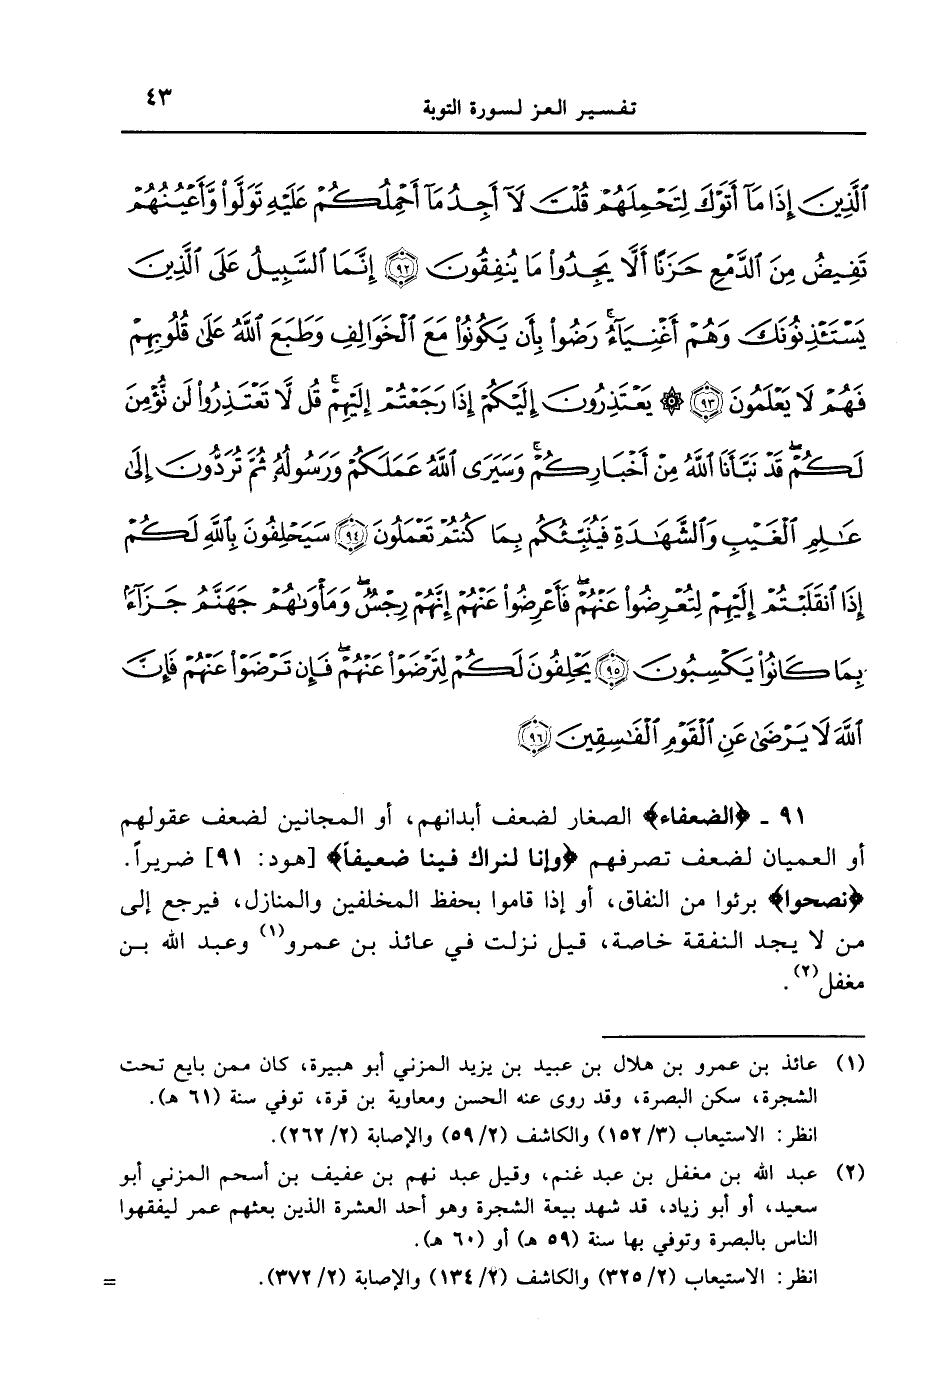 تفسير العز لسورة التوبة ٤٣
ٱلَّذِينَ إِذَا مَآ أَتَوْكَ لِتَحْمِلَهُمْ قُلْتَ لَآ أَجِدُ مَآ أَحْمِلُكُمْ عَلَيْهِ تَوَلَّوا۟ وَّأَعْيُنُهُمْ
تَفِيضُ مِنَ ٱلدَّمْعِ حَزَنًا أَلَّا يَجِدُوا۟ مَا يُنفِقُونَ ﴿٩٢﴾ إِنَّمَا ٱلسَّبِيلُ عَلَى ٱلَّذِينَ
يَسْتَـْٔذِنُونَكَ وَهُمْ أَغْنِيَآءُ ۚ رَضُوا۟ بِأَن يَكُونُوا۟ مَعَ ٱلْخَوَالِفِ وَطَبَعَ ٱللَّهُ عَلَىٰ قُلُوبِهِمْ
فَهُمْ لَا يَعْلَمُونَ ﴿٩٣﴾ ۞ يَعْتَذِرُونَ إِلَيْكُمْ إِذَا رَجَعْتُمْ إِلَيْهِمْ ۚ قُل لَّا تَعْتَذِرُوا۟ لَن نُّؤْمِنَ
لَكُمْ ۖ قَدْ نَبَّأَنَا ٱللَّهُ مِنْ أَخْبَارِكُمْ ۚ وَسَيَرَى ٱللَّهُ عَمَلَكُمْ وَرَسُولُهُۥ ثُمَّ تُرَدُّونَ إِلَىٰ
عَـٰلِمِ ٱلْغَيْبِ وَٱلشَّهَـٰدَةِ فَيُنَبِّئُكُم بِمَا كُنتُمْ تَعْمَلُونَ ﴿٩٤﴾ سَيَحْلِفُونَ بِٱللَّهِ لَكُمْ
إِذَا ٱنقَلَبْتُمْ إِلَيْهِمْ لِتُعْرِضُوا۟ عَنْهُمْ ۖ فَأَعْرِضُوا۟ عَنْهُمْ ۖ إِنَّهُمْ رِجْسٌ ۖ وَمَأْوَىٰهُمْ جَهَنَّمُ جَزَآءًۢ
بِمَا كَانُوا۟ يَكْسِبُونَ ﴿٩٥﴾ يَحْلِفُونَ لَكُمْ لِتَرْضَوْا۟ عَنْهُمْ ۖ فَإِن تَرْضَوْا۟ عَنْهُمْ فَإِنَّ
ٱللَّهَ لَا يَرْضَىٰ عَنِ ٱلْقَوْمِ ٱلْفَـٰسِقِينَ ﴿٩٦﴾
٩١ - ﴿الضعفاء﴾ الصغار لضعف أبدانهم، أو المجانين لضعف عقولهم
أو العميان لضعف تصرفهم ﴿وإنا لنراك فينا ضعيفاً﴾ [هود: ٩١] ضريراً.
﴿نصحوا﴾ برئوا من النفاق، أو إذا قاموا بحفظ المخلفين والمنازل، فيرجع إلى
من لا يجد النفقة خاصة، قيل نزلت في عائذ بن عمرو(١) وعبد الله بن
مغفل(٢).
(١) عائذ بن عمرو بن هلال بن عبيد بن يزيد المزني أبو هبيرة، كان ممن بايع تحت
الشجرة، سكن البصرة، وقد روى عنه الحسن ومعاوية بن قرة، توفي سنة (٦١ هـ).
انظر: الاستيعاب (٣/ ١٥٢) والكاشف (٢/ ٥٩) والإصابة (٢/ ٢٦٢).
(٢) عبد الله بن مغفل بن عبد غنم، وقيل عبد نهم بن عفيف بن أسحم المزني أبو
سعيد، أو أبو زياد، قد شهد بيعة الشجرة وهو أحد العشرة الذين بعثهم عمر ليفقهوا
الناس بالبصرة وتوفي بها سنة (٥٩ هـ) أو (٦٠ هـ).
انظر: الاستيعاب (٢/ ٣٢٥) والكاشف (٢/ ١٣٤) والإصابة (٢/ ٣٧٢). =